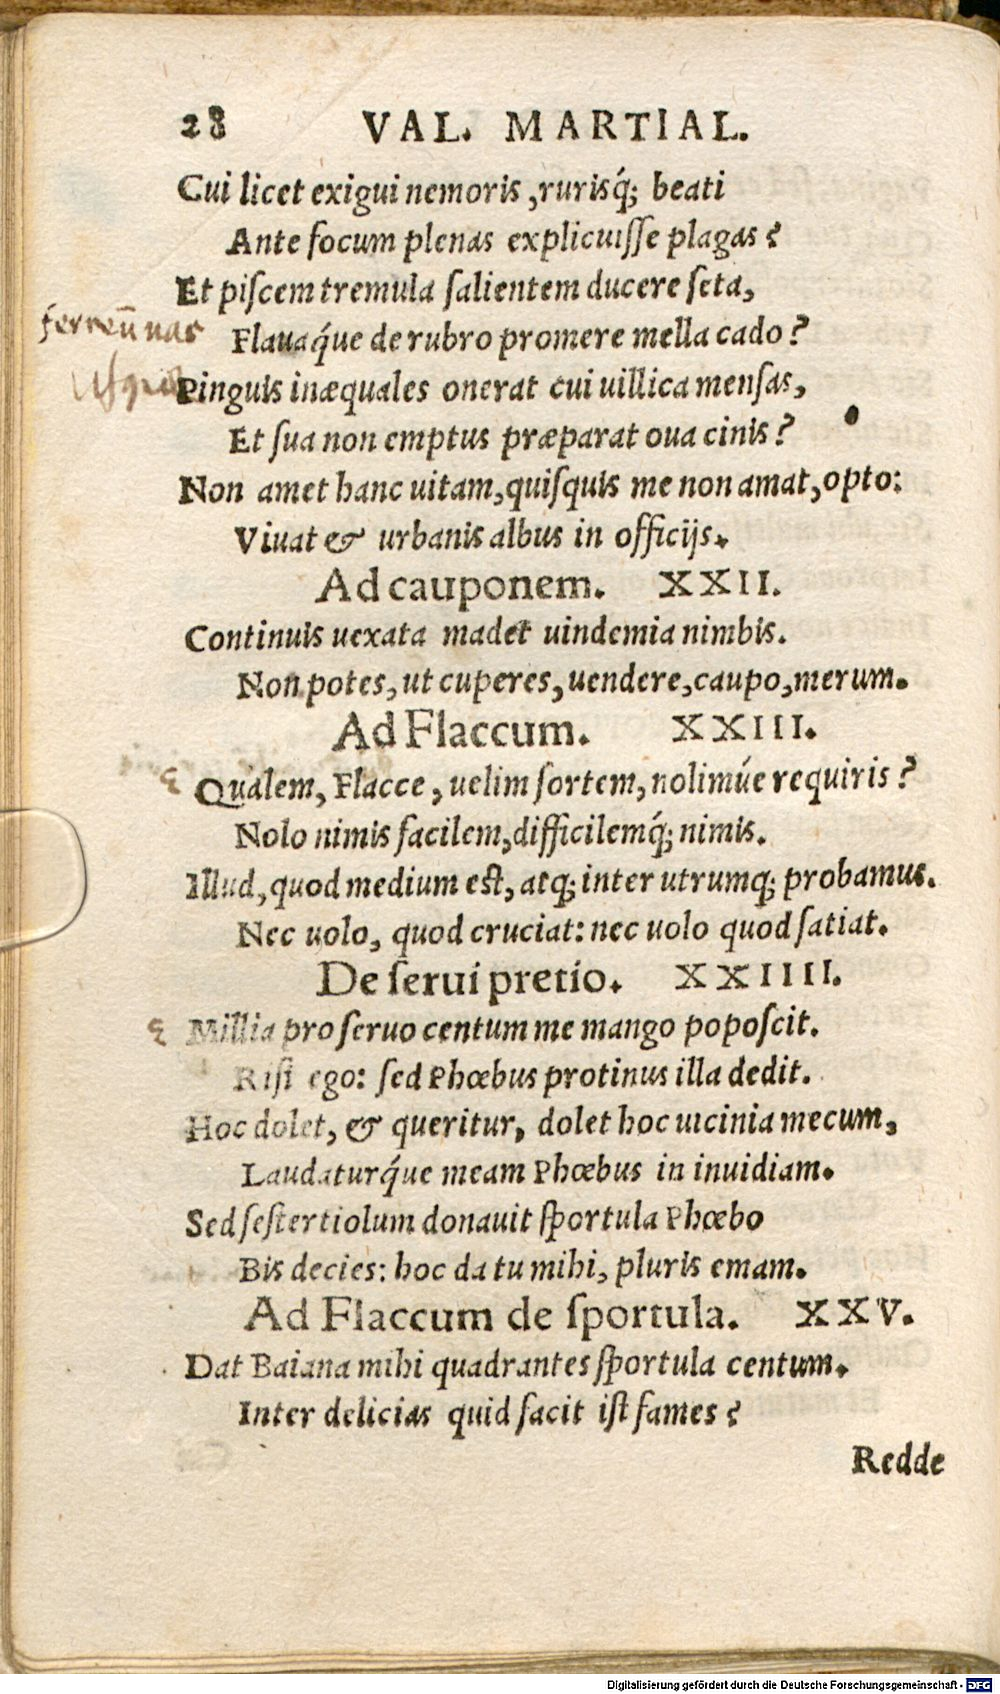 28 VAL. MARTIAL.
Cui licet exigui nemoris, rurisq́; beati
Ante focum plenas explicuiſſe plagas?
Et piſcem tremula ſalientem ducere ſeta,
ferreũ uas
Flauaq́ue de rubro promere mella cado?
Pinguis inæquales onerat cui uillica menſas,
Et ſua non emptus præparat oua cinis?
Non amet hanc uitam, quiſquis me non amat, opto:
Viuat & urbanis albus in officijs.
Ad cauponem. XXII.
Continuis uexata madet uindemia nimbis.
Non potes, ut cuperes, uendere, caupo, merum.
Ad Flaccum. XXIII.
Qualem, Flacce, uelim ſortem, nolimúe requiris?
Nolo nimis facilem, difficilemq́; nimis.
Illud, quod medium eſt, atq; inter utrumq; probamus.
Nec uolo, quod cruciat: nec uolo quod ſatiat.
De ſerui pretio. XXIIII.
Millia pro ſeruo centum me mango popoſcit.
Riſi ego: ſed Phœbus protinus illa dedit.
Hoc dolet, & queritur, dolet hoc uicinia mecum,
Laudaturq́ue meam Phœbus in inuidiam.
Sed ſeſtertiolum donauit ſportula Phœbo
Bis decies: hoc da tu mihi, pluris emam.
Ad Flaccum de ſportula. XXV.
Dat Baiana mihi quadrantes ſportula centum.
Inter delicias quid facit iſt fames?
Redde
Digitalisierung gefördert durch die Deutsche Forschungsgemeinschaft - DFG